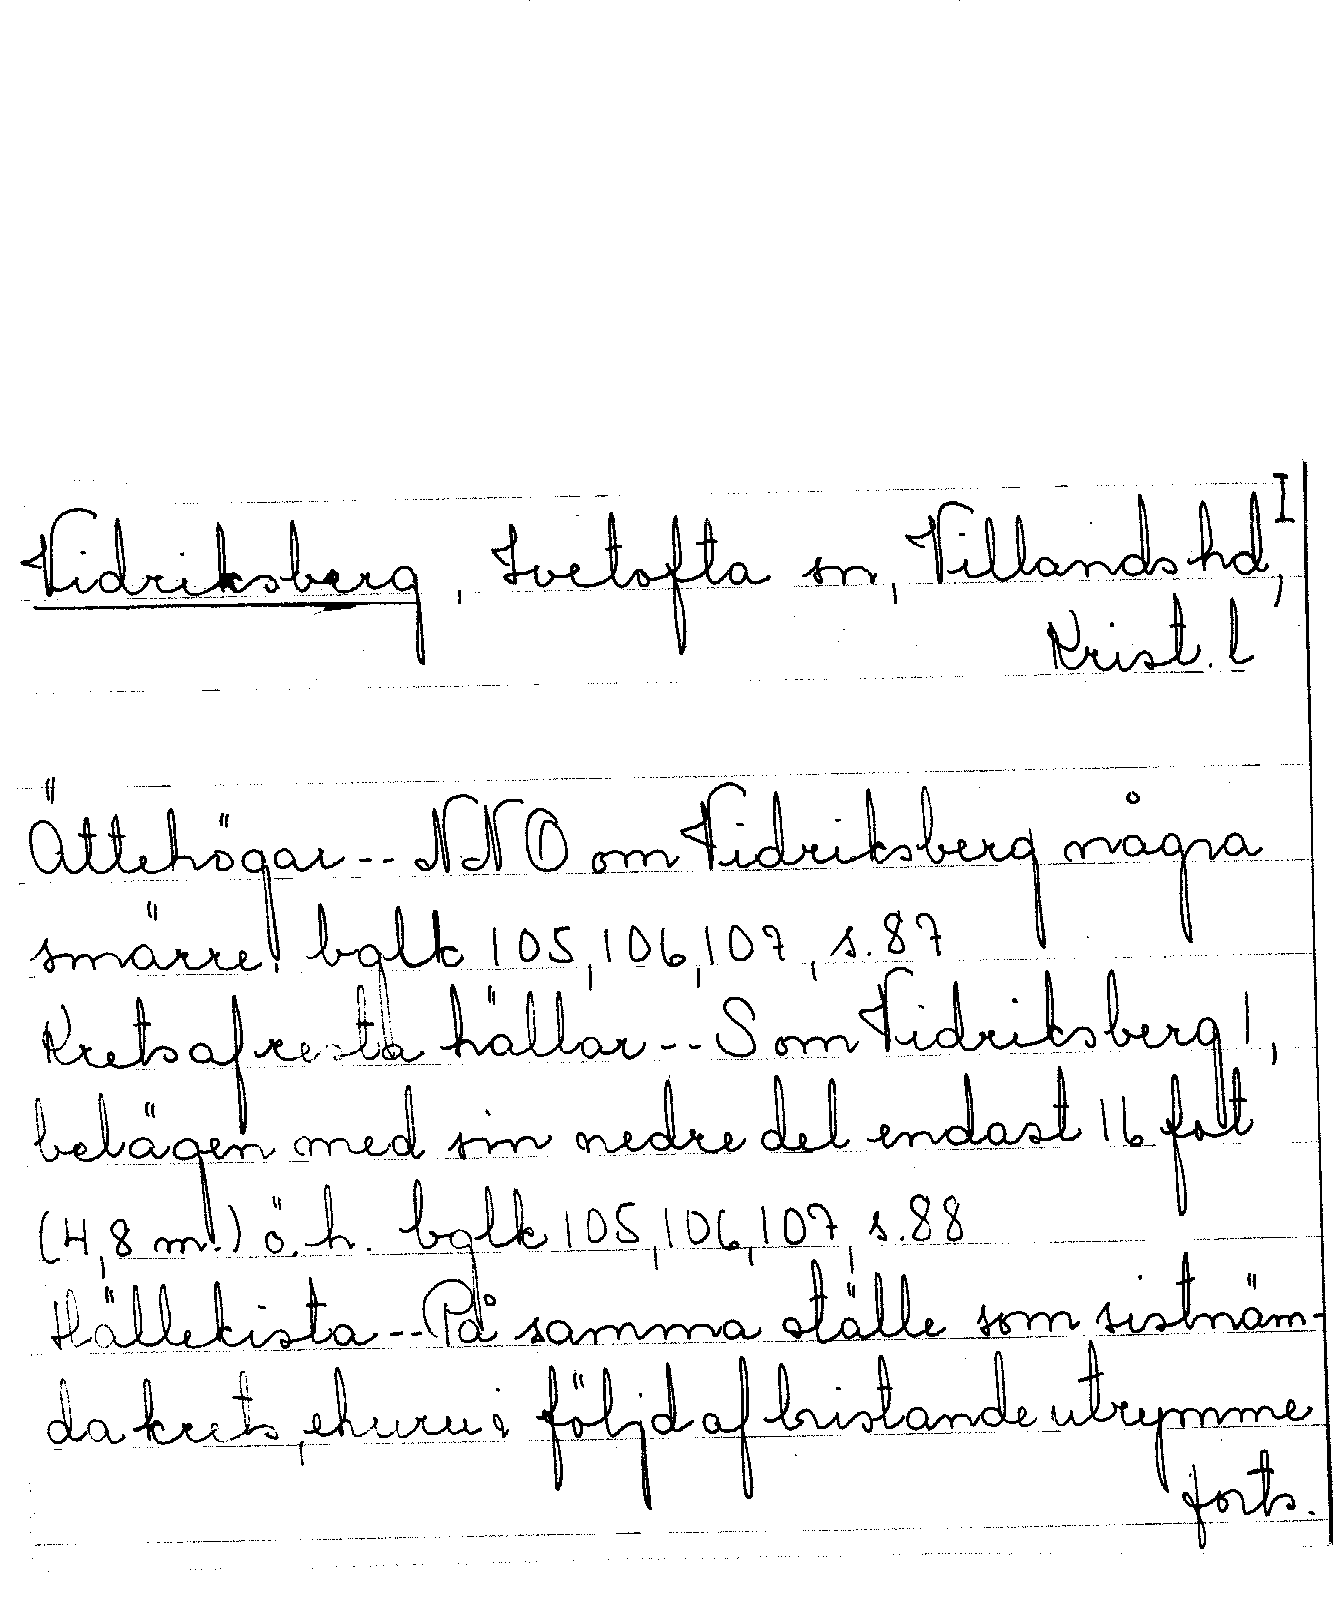 I
Vidriksberg, Ivetofta sn, Villands hd,
Krist. l
Ättehögar -- NNO om Vidriksberg några
smärre. bglk 105, 106, 107, s. 87
Krets af resta hällar -- Som Vidriksberg 1,
belägen med sin nedre del endast 16 fot
(4,8 m.) ö. h. bglk 105, 106, 107, s. 88
Hällekista -- På samma ställe som sistnäm-
da krets, ehuru i följd af bristande utrymme
forts.